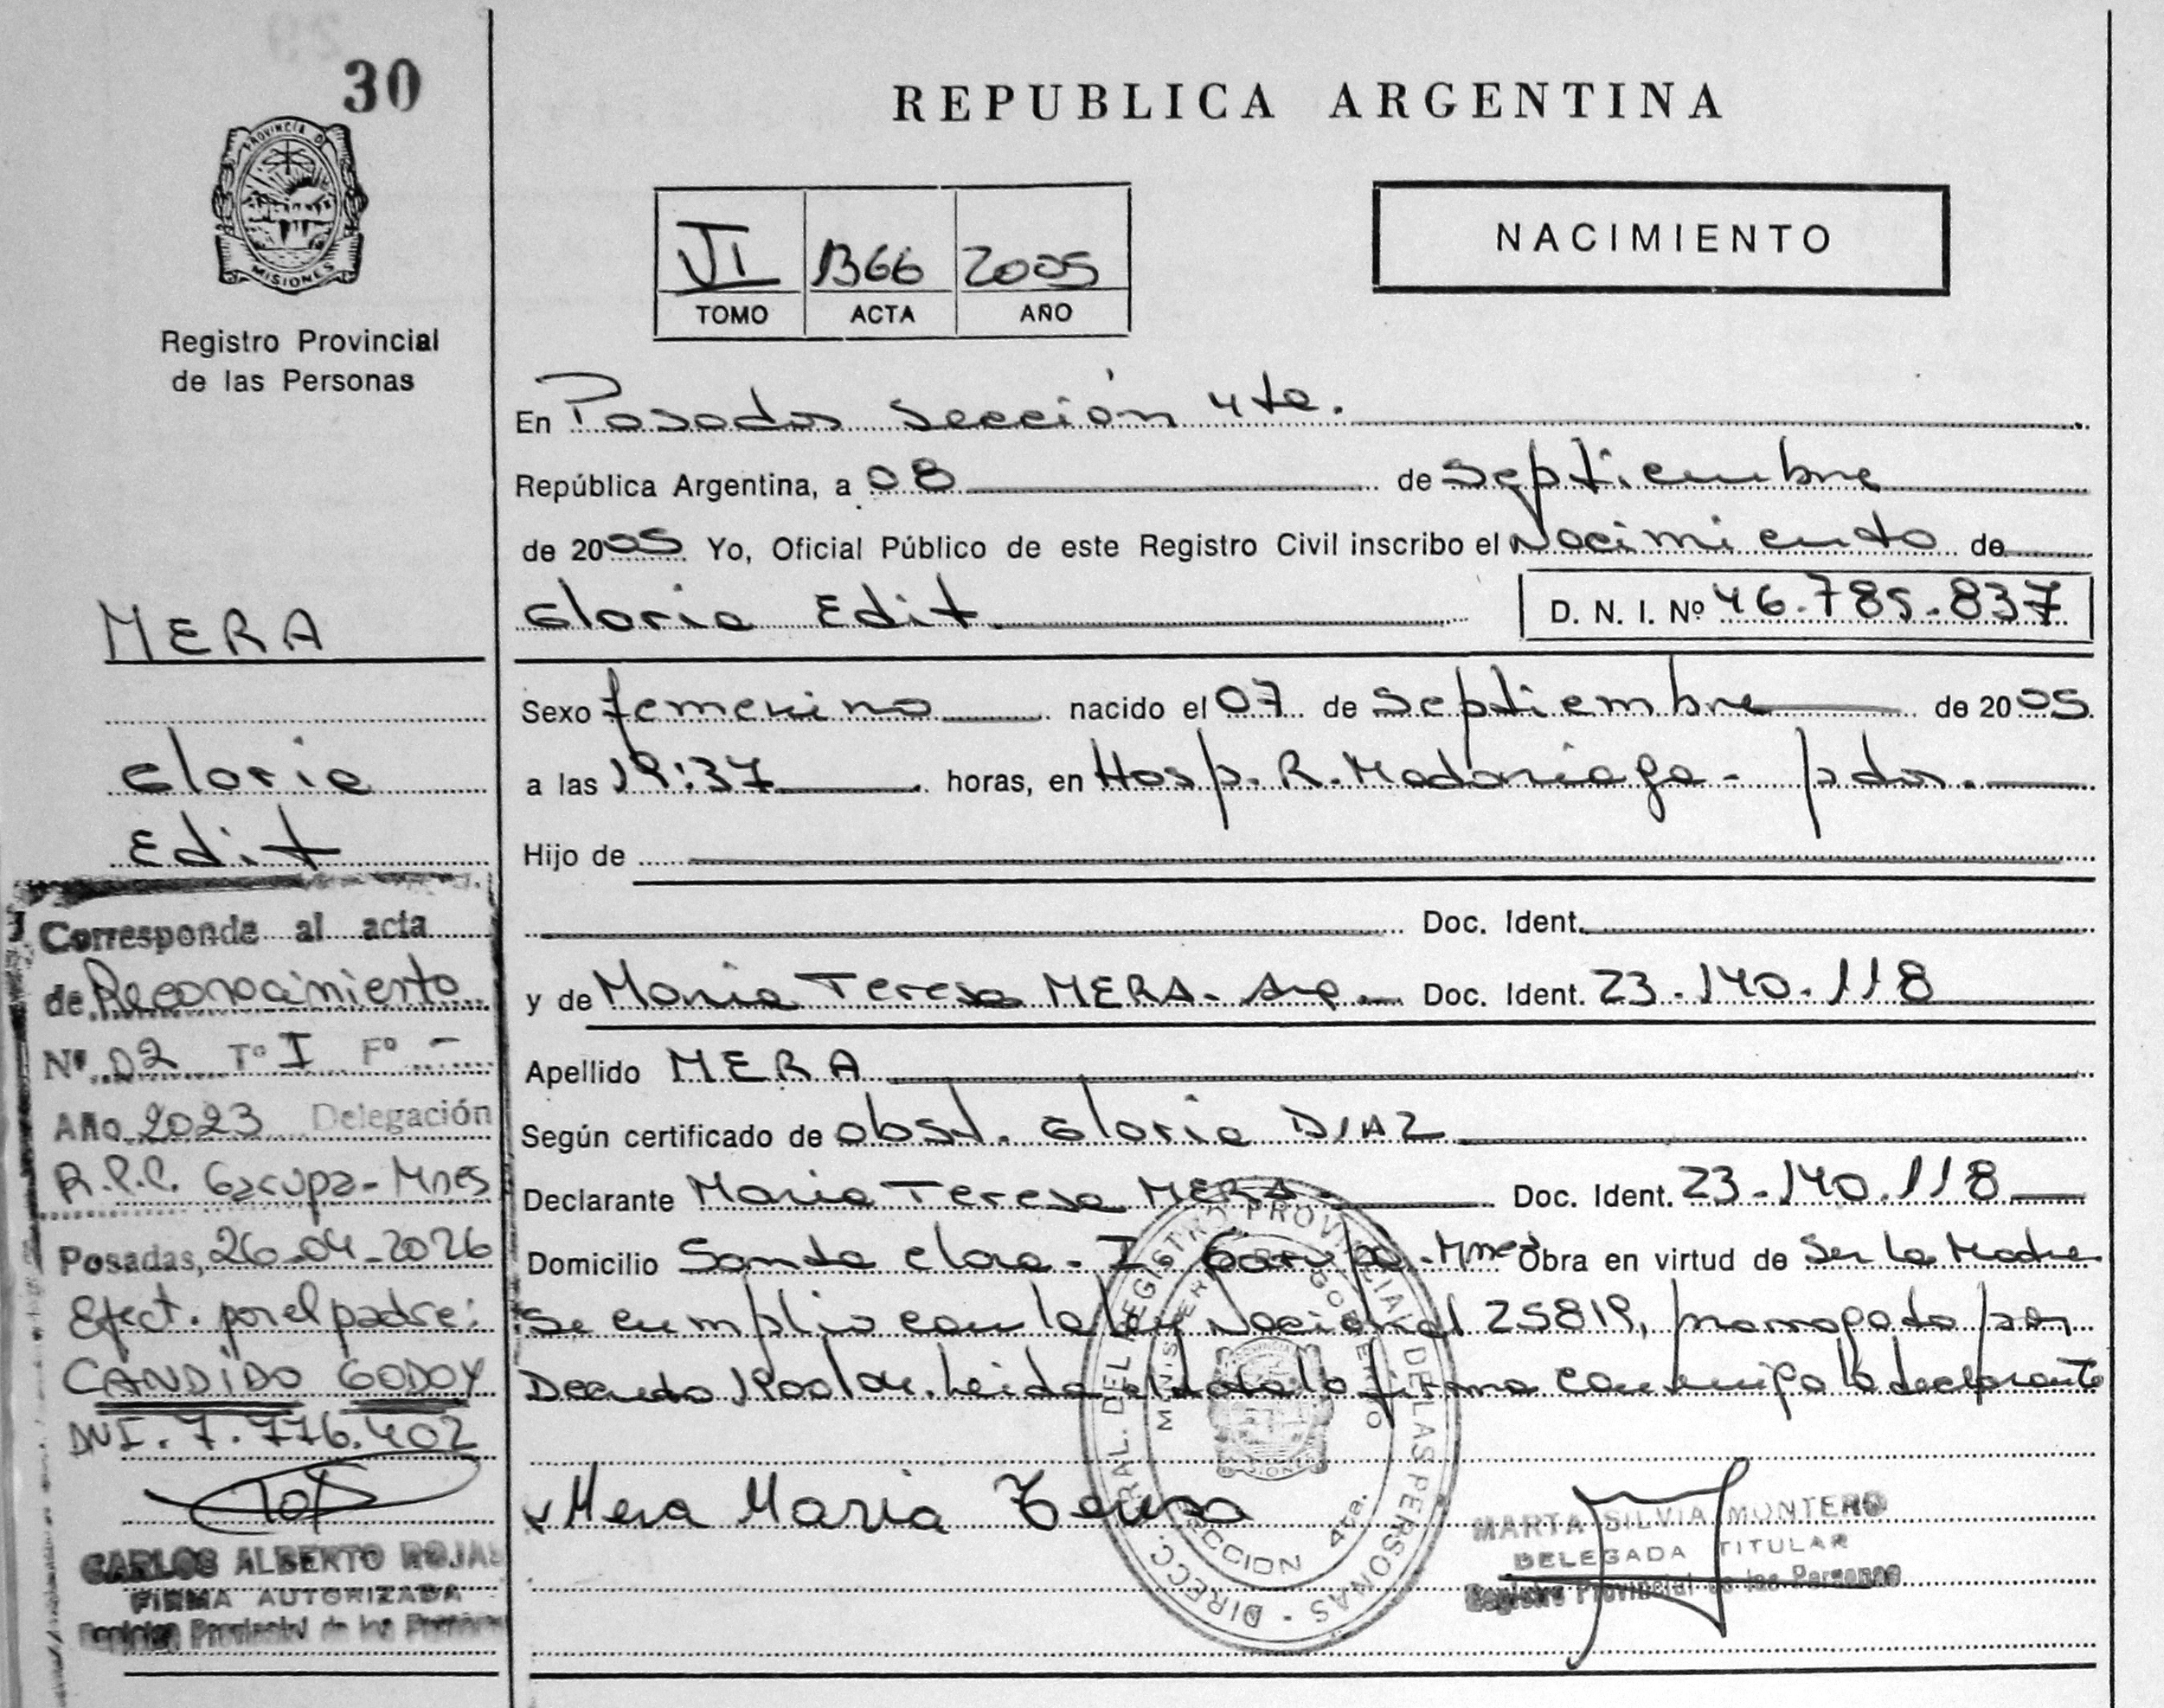 30
PROVINCIA DE
MISIONES
Registro Provincial
de las Personas
REPUBLICA ARGENTINA
VI 1366 2005
TOMO ACTA AÑO
NACIMIENTO
En Posadas sección 4ta.
República Argentina, a 08 de septiembre
de 2005 Yo, Oficial Público de este Registro Civil inscribo el Nacimiento de
Gloria Edit. D. N. I. Nº 46.785.837
Sexo femenino nacido el 07 de septiembre de 2005
a las 19:37 horas, en Hosp. R. Madariaga - pdas.
Hijo de
Doc. Ident.
y de Maria Teresa MERA - Arg. Doc. Ident. 23.140.118
Apellido MERA
Según certificado de obst. Gloria DIAZ
Declarante Maria Teresa MERA. Doc. Ident. 23.140.118
Domicilio Santa Clara - I Garupa - Mnes Obra en virtud de ser la Madre
se cumplio con la ley Nacional 25819, prorrogado por
Decreto Leida el acta la firma conmigo la declarante
Mera Maria Teresa
MARTA SILVIA MONTERO
DELEGADA TITULAR
Registro Provincial de las Personas
DIRECC. GRAL. DEL REGISTRO PROVINCIAL DE LAS PERSONAS
MINISTERIO GOBIERNO
SECCION 4ta.
MERA
Gloria
Edit
Corresponde al acta
de Reconocimiento
Nº 02 Tº I Fº -
Año 2023 Delegación
R.P.P. Garupa - Mnes
Posadas, 26-04-2026
Efect. por el padre:
CANDIDO GODOY
DNI. 7.776.402
CARLOS ALBERTO ROJAS
FIRMA AUTORIZADA
Registro Provincial de las Personas